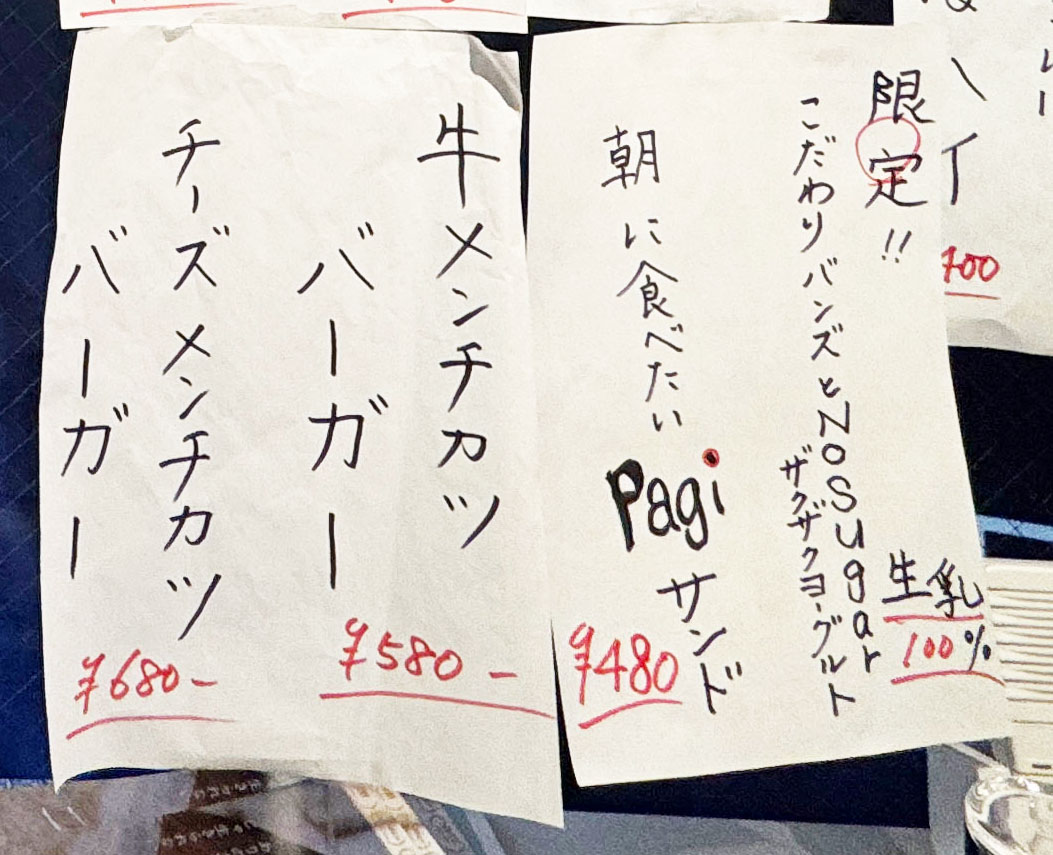 限定!!
こだわりバンズとNoSugar
ザクザクヨーグルト
生乳
100%
朝に食べたい
Pagi
サンド
¥480
牛メンチカツ
バーガー
¥580-
チーズメンチカツ
バーガー
¥680-